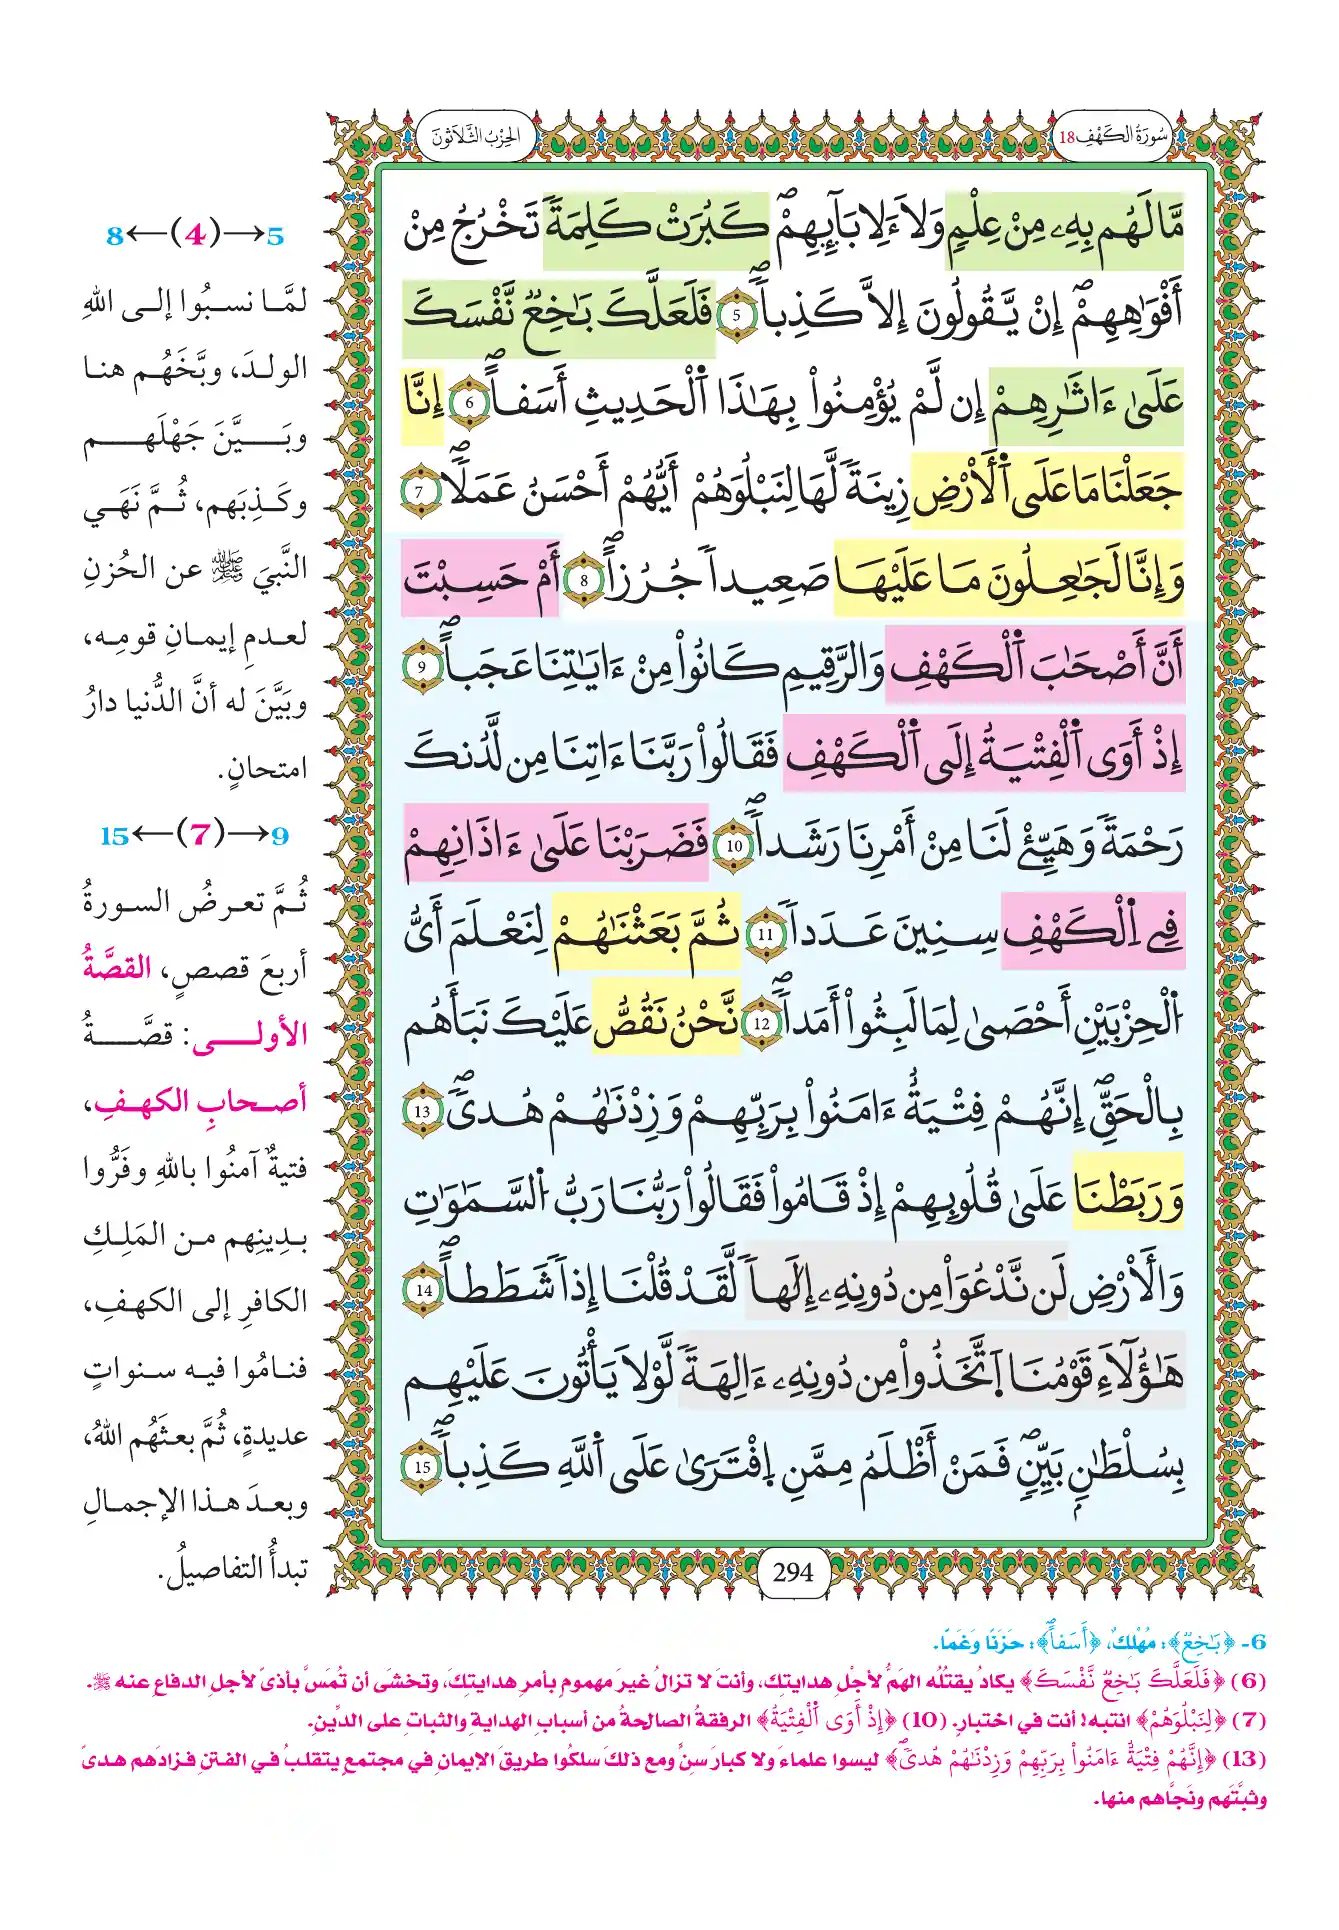 سُورَةُ الكَهْفِ 18
الحِزْبُ الثَّلَاثُونَ
مَّا لَهُم بِهِۦ مِنْ عِلْمٍ وَلَا ءَلِابَآئِهِمْۖ كَبُرَتْ كَلِمَةً تَخْرُجُ مِنْ
أَفْوَٰهِهِمْۖ إِنْ يَّقُولُونَ إِلَّا كَذِباًۖ 5 فَلَعَلَّكَ بَٰخِعٌ نَّفْسَكَ
عَلَىٰ ءَاثَٰرِهِمْ إِن لَّمْ يُؤْمِنُواْ بِهَٰذَا اَ۬لْحَدِيثِ أَسَفاًۖ 6 إِنَّا
جَعَلْنَا مَا عَلَى اَ۬لْأَرْضِ زِينَةً لَّهَا لِنَبْلُوَهُمْ أَيُّهُمْ أَحْسَنُ عَمَلاًۖ 7
وَإِنَّا لَجَٰعِلُونَ مَا عَلَيْهَا صَعِيداً جُرُزاًۖ 8 أَمْ حَسِبْتَ
أَنَّ أَصْحَٰبَ اَ۬لْكَهْفِ وَالرَّقِيمِ كَانُواْ مِنْ ءَايَٰتِنَا عَجَباًۖ 9
إِذْ أَوَى اَ۬لْفِتْيَةُ إِلَى اَ۬لْكَهْفِ فَقَالُواْ رَبَّنَا ءَاتِنَا مِن لَّدُنكَ
رَحْمَةً وَهَيِّئْ لَنَا مِنْ أَمْرِنَا رَشَداًۖ 10 فَضَرَبْنَا عَلَىٰ ءَاذَانِهِمْ
فِي اِ۬لْكَهْفِ سِنِينَ عَدَداً 11 ثُمَّ بَعَثْنَٰهُمْ لِنَعْلَمَ أَيُّ
اُ۬لْحِزْبَيْنِ أَحْصَىٰ لِمَا لَبِثُواْ أَمَداًۖ 12 نَّحْنُ نَقُصُّ عَلَيْكَ نَبَأَهُم
بِالْحَقِّۖ إِنَّهُمْ فِتْيَةٌ ءَامَنُواْ بِرَبِّهِمْ وَزِدْنَٰهُمْ هُدىًۖ 13
وَرَبَطْنَا عَلَىٰ قُلُوبِهِمْ إِذْ قَامُواْ فَقَالُواْ رَبُّنَا رَبُّ اُ۬لسَّمَٰوَٰتِ
وَالْأَرْضِ لَن نَّدْعُوَاْ مِن دُونِهِۦ إِلَٰهاً لَّقَدْ قُلْنَا إِذاً شَطَطاًۖ 14
هَٰؤُلَآءِ قَوْمُنَا اَ۪تَّخَذُواْ مِن دُونِهِۦ ءَالِهَةً لَّوْلَا يَأْتُونَ عَلَيْهِم
بِسُلْطَٰنٍ بَيِّنٍۖ فَمَنْ أَظْلَمُ مِمَّنِ اِ۪فْتَرَىٰ عَلَى اَ۬للَّهِ كَذِباًۖ 15
294
5←(4)→8
لمَّا نسبُوا إلى اللهِ
الولدَ، وبَّخَهُم هنا
وبَيَّنَ جَهْلَهم
وكَذِبَهم، ثُمَّ نَهَي
النَّبيَ ﷺ عن الحُزنِ
لعدمِ إيمانِ قومِه،
وبَيَّنَ له أنَّ الدُّنيا دارُ
امتحانٍ.
9←(7)→15
ثُمَّ تعرضُ السورةُ
أربعَ قصصٍ، القصَّةُ
الأولى: قصَّةُ
أصحابِ الكهفِ،
فتيةٌ آمنُوا باللهِ وفَرُّوا
بدِينِهم من المَلِكِ
الكافرِ إلى الكهفِ،
فنامُوا فيه سنواتٍ
عديدةٍ، ثُمَّ بعثَهُم اللهُ،
وبعدَ هذا الإجمالِ
تبدأُ التفاصيلُ.
6- ﴿بَٰخِعٌ﴾: مُهْلِكٌ، ﴿أَسَفاًۖ﴾: حَزَنًا وَغَمًا.
(6) ﴿فَلَعَلَّكَ بَٰخِعٌ نَّفْسَكَ﴾ يكادُ يقتُلُه الهَمُّ لأجْلِ هدايتِك، وأنتَ لا تزالُ غيرَ مهمومٍ بأمرِ هدايتِكَ، وتخشَى أن تُمَسَّ بأذىً لأجلِ الدفاعِ عنه ﷺ.
(7) ﴿لِنَبْلُوَهُمْ﴾ انتبه! أنت في اختبارٍ. (10) ﴿إِذْ أَوَى اَ۬لْفِتْيَةُ﴾ الرفقةُ الصالحةُ من أسبابِ الهدايةِ والثباتِ على الدِّينِ.
(13) ﴿إِنَّهُمْ فِتْيَةٌ ءَامَنُواْ بِرَبِّهِمْ وَزِدْنَٰهُمْ هُدىًۖ﴾ ليسوا علماءَ ولا كبارَ سنٍّ ومع ذلكَ سلكُوا طريقَ الإيمانِ في مجتمعٍ يتقلبُ في الفتنِ فزادَهم هدىً
وثبَّتَهم ونَجَّاهم منها.